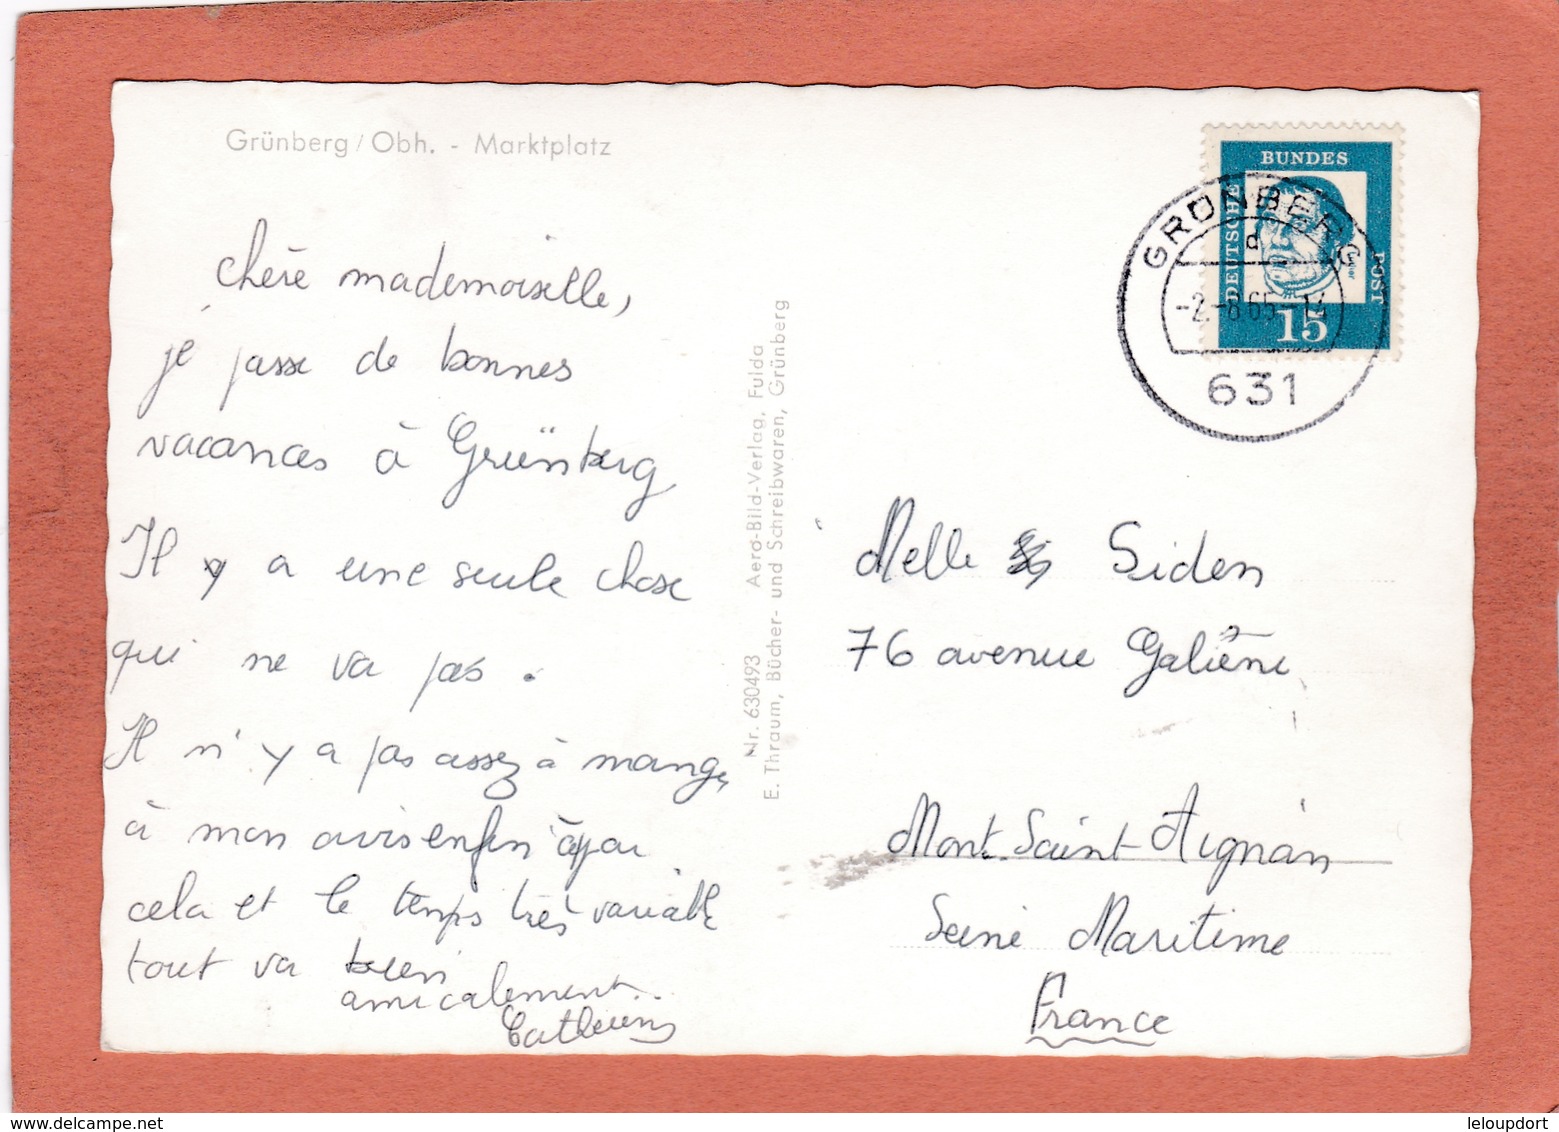 Grünberg / Obh. - Marktplatz
chère mademoiselle,
je passe de bonnes
vacances à Grünberg
Il y a une seule chose
qui ne va pas.
Il n'y a pas assez à manger
à mon avis enfin à par
cela et le temps très variable
tout va bien
amicalement.
Nr. 630493 Aero-Bild-Verlag, Fulda
E. Thraum, Bücher- und Schreibwaren, Grünberg
DEUTSCHE BUNDES POST
15
GRÜNBERG
d
-2.-8.65-14
631
Melle Siden
76 avenue Galiène
Mont Saint Aignan
Seine Maritime
France
www.delcampe.net
leloupdort